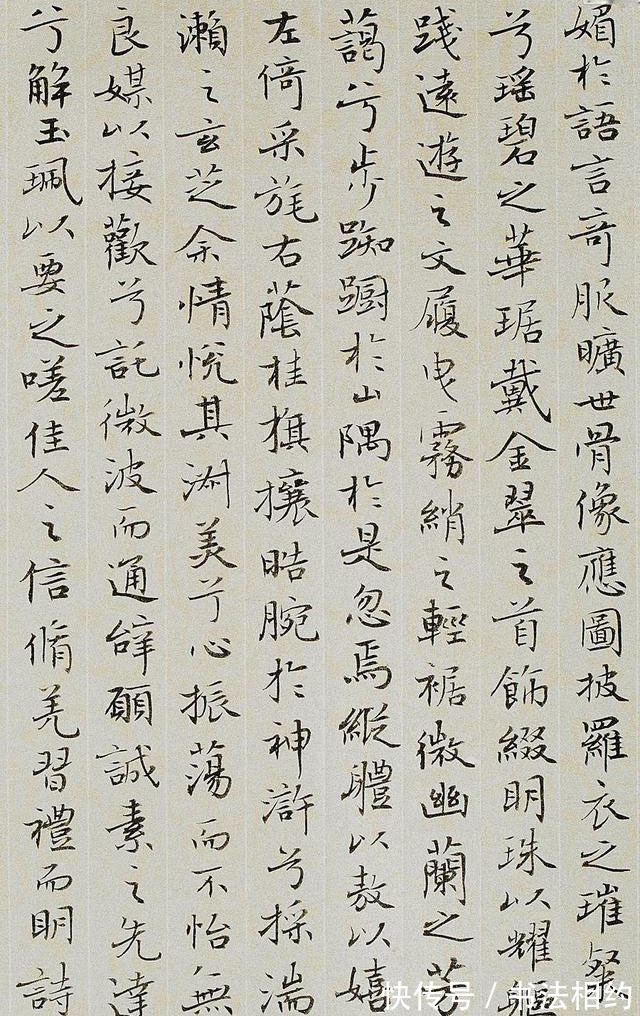 媚於語言奇服曠世骨像應圖披羅衣之璀粲
兮瑶碧之華琚戴金翠之首飾綴明珠以耀軀
践遠遊之文履曳霧綃之輕裾微幽蘭之芳
藹兮步踟蹰於山隅於是忽焉縱體以敖以嬉
左倚采旄右蔭桂旗攘皓腕於神滸兮採湍
瀨之玄芝余情悅其淑美兮心振蕩而不怡無
良媒以接歡兮託微波而通辭願誠素之先達
兮解玉珮以要之嗟佳人之信脩羌習禮而明詩
快传号/书法相约